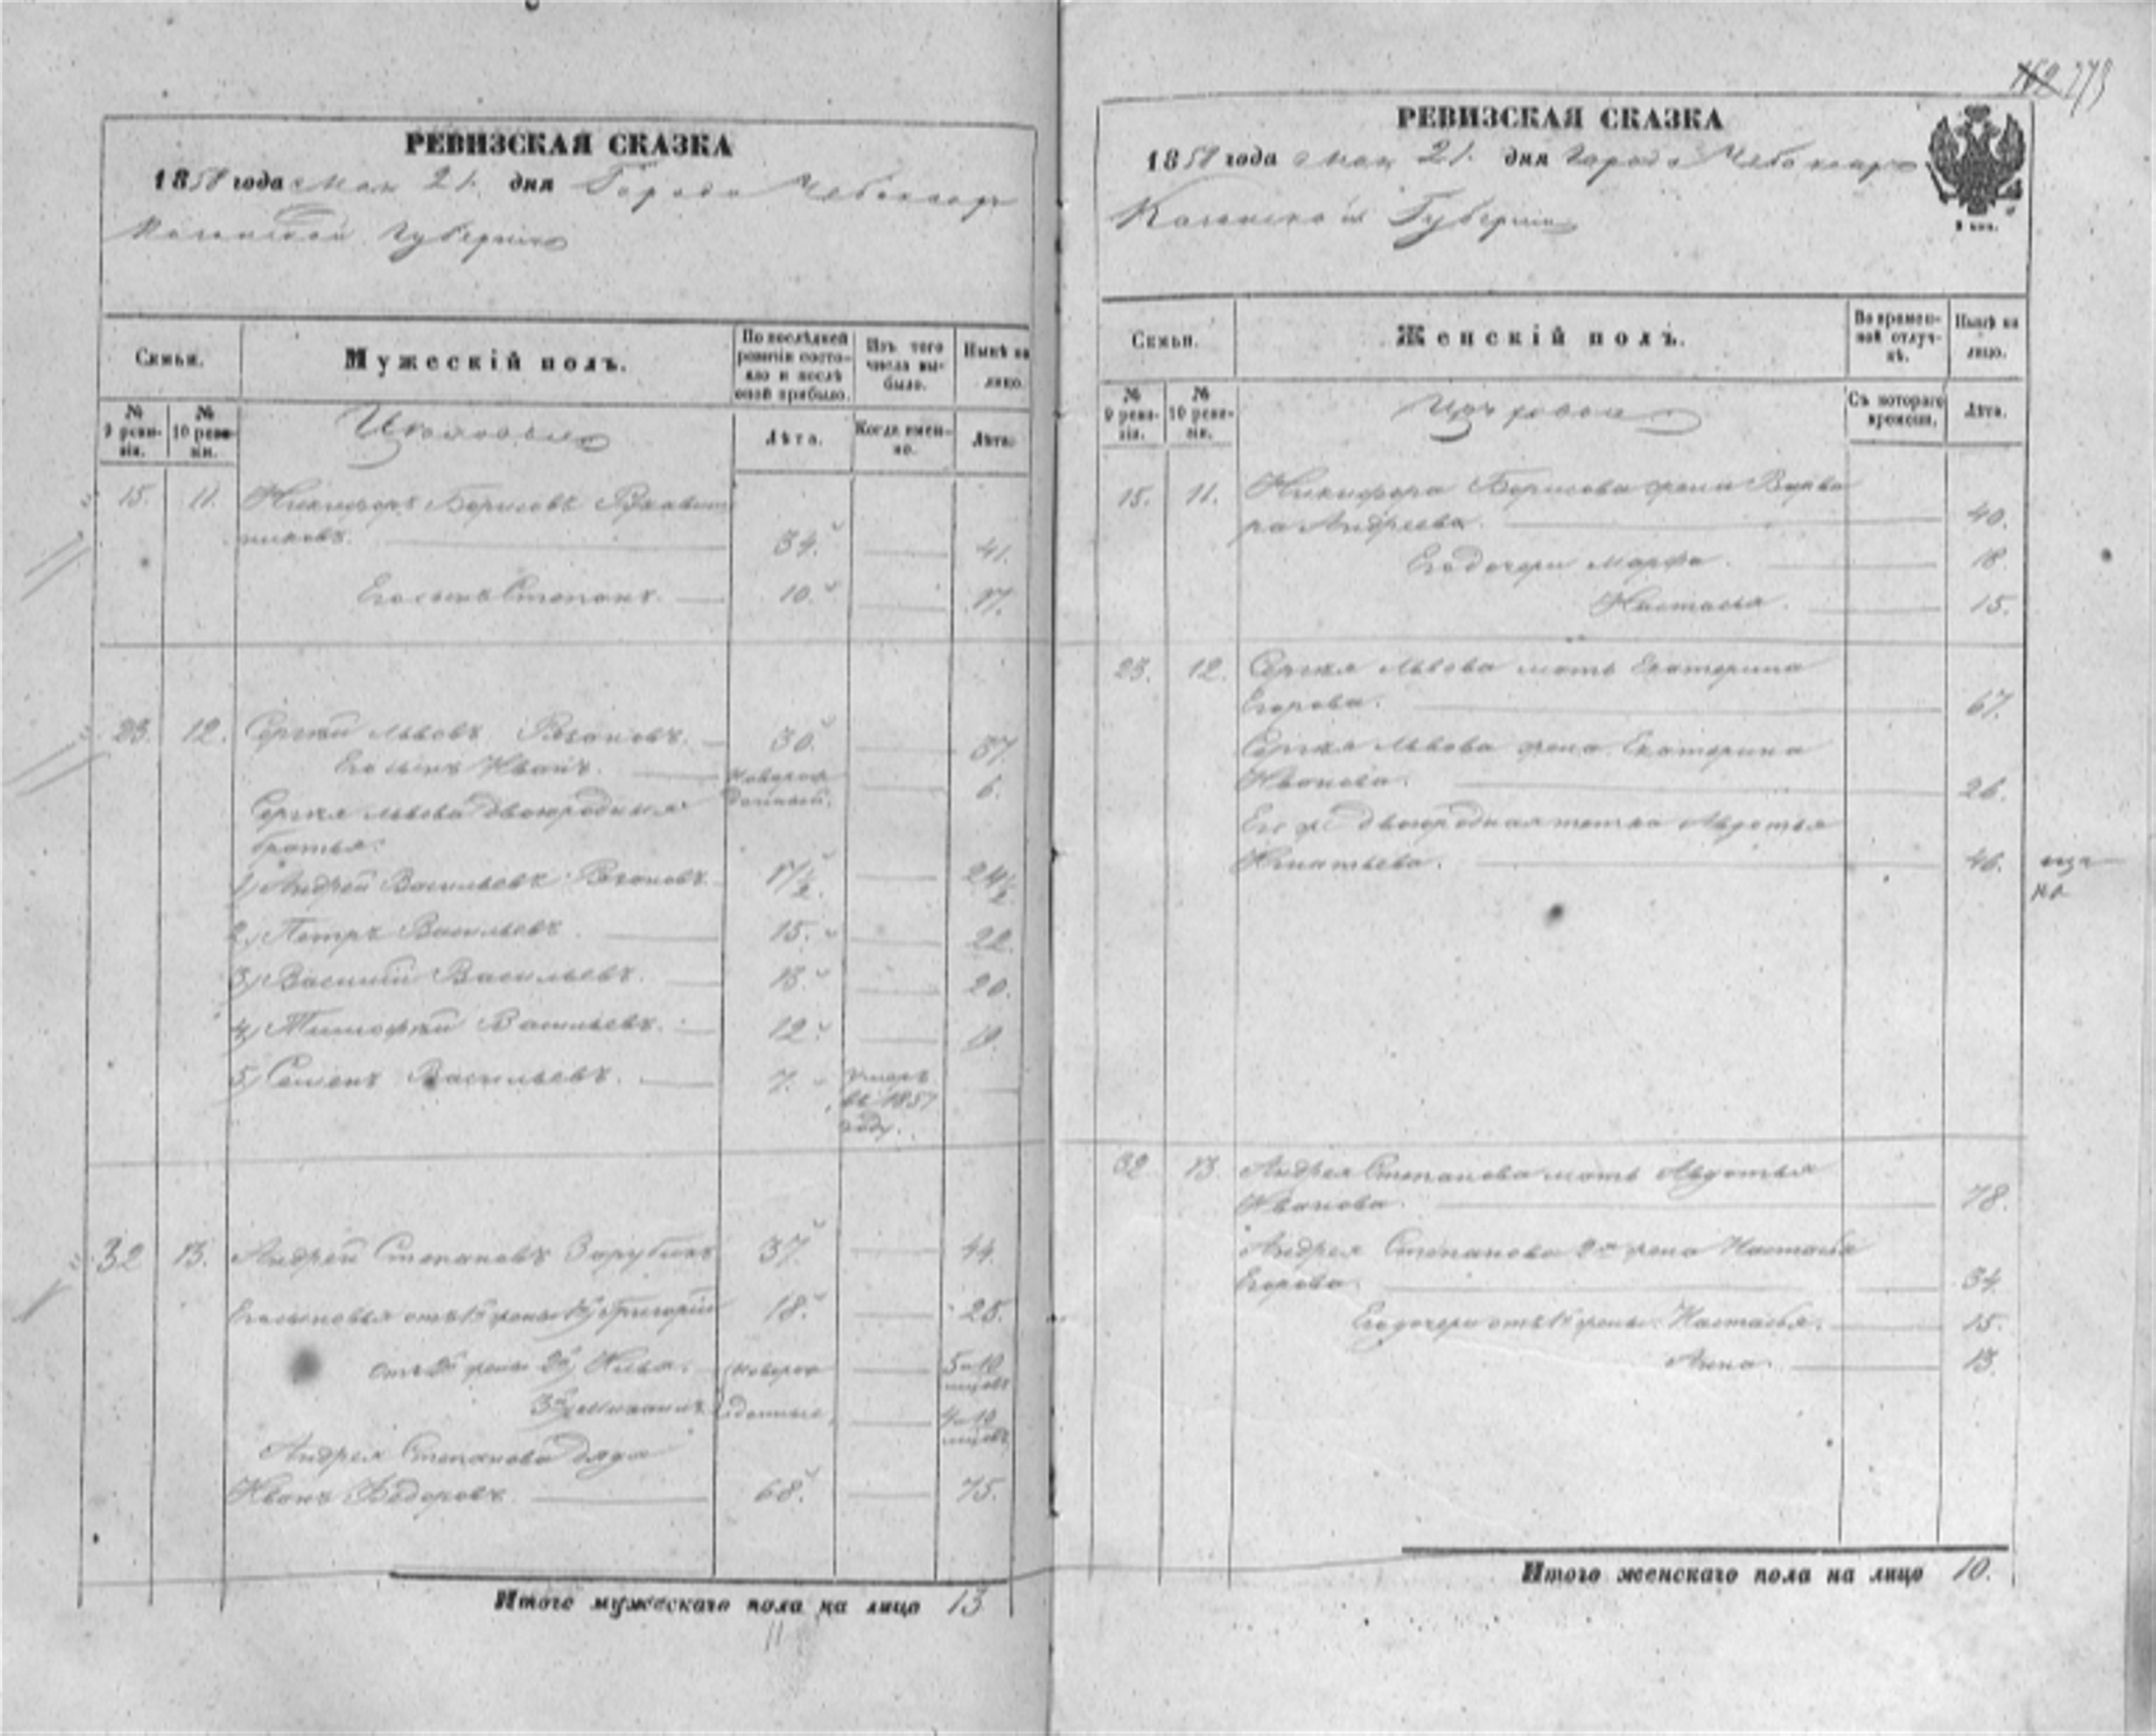 РЕВИЗСКАЯ СКАЗКА
1858 года мая 21. дня Города Чебоксар
Казанской Губернии
Семьи.
Мужескій полъ.
По послѣдней ревизіи состояло и послѣ оной прибыло.
Изъ того числа выбыло.
Нынѣ на лицо.
№ 9 ревизіи.
№ 10 ревизіи.
Цеховые
Лѣта.
Когда именно.
Лѣта.
15. 11. Никифоръ Борисовъ Рукавиш
никовъ. 34. 41.
Его сынъ Степанъ. 10. 17.
23. 12. Сергѣй Львовъ 30. 37.
Его сынъ Иванъ. новорож
денный. 6.
Сергѣя Львова двоюродныя
братья:
1) Андрей Васильевъ 17½. 24½
2) Петръ Васильевъ 15. 22.
3) Василій Васильевъ. 13. 20.
4) Тимофѣй Васильевъ. 12. 19.
5) Семенъ Васильевъ. 7. умеръ
въ 1857
году.
32 13. Андрей Степановъ Зарубинъ 37. 44.
Его сыновья отъ 1й жены 1й Григорій 18. 25.
отъ 2й жены 2й Илья. новорож 5 и 10
мцовъ
3й Михаилъ денные. 4 и 10
мцовъ
Андрея Степанова дядя
Иванъ Федоровъ. 68. 75.
Итого мужескаго пола на лицо 13
11
РЕВИЗСКАЯ СКАЗКА
1858 года мая 21. дня Города Чебоксаръ
Казанской Губерніи
Семьи.
Женскій полъ.
Во временной отлучкѣ.
Нынѣ на лицо.
№ 9 ревизіи.
№ 10 ревизіи.
Съ котораго времени.
Лѣта.
15. 11. Никифора Борисова жена Варва
ра Андреева. 40.
Его дочери Марфа. 18
Настасья. 15.
23. 12. Сергѣя Львова мать Екатерина
Егорова. 67.
Сергѣя Львова жена Екатерина
Иванова. 26.
Его же двоюродная тетка Авдотья
Игнатьева. 46.
32 13. Андрея Степанова мать Авдотья
Иванова. 78.
Андрея Степанова 2я жена Настасья
Егорова. 34.
Его дочери отъ 1й жены Настасья. 15.
Анна. 13.
Итого женскаго пола на лицо 10.